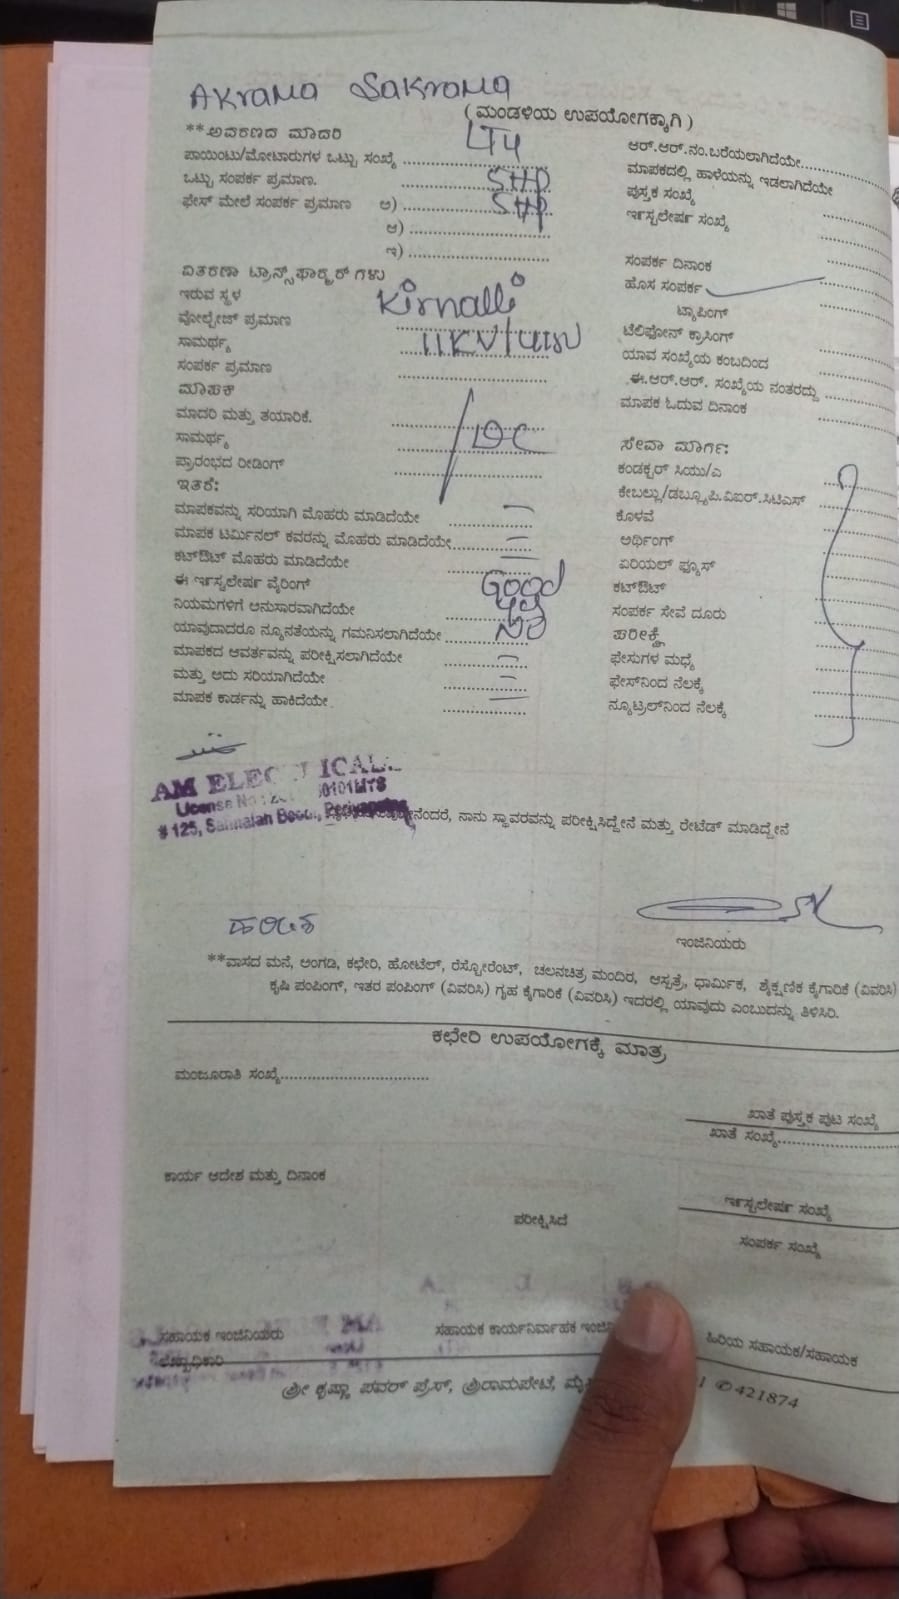 Akrama Sakrama
(ಮಂಡಳಿಯ ಉಪಯೋಗಕ್ಕಾಗಿ)
**ಅವರಣದ ಮಾದರಿ LT4
ಪಾಯಿಂಟು/ಮೋಟಾರುಗಳ ಒಟ್ಟು ಸಂಖ್ಯೆ
ಒಟ್ಟು ಸಂಪರ್ಕ ಪ್ರಮಾಣ. 5HP
ಫೇಸ್ ಮೇಲೆ ಸಂಪರ್ಕ ಪ್ರಮಾಣ ಅ) 5HP
ಆ)
ಇ)
ವಿತರಣಾ ಟ್ರಾನ್ಸ್‌ಫಾರ್ಮರ್‌ಗಳು
ಇರುವ ಸ್ಥಳ Kirnalli
ವೋಲ್ಟೇಜ್ ಪ್ರಮಾಣ
ಸಾಮರ್ಥ್ಯ 11KV/
ಸಂಪರ್ಕ ಪ್ರಮಾಣ
ಮಾಪಕ
ಮಾದರಿ ಮತ್ತು ತಯಾರಿಕೆ.
ಸಾಮರ್ಥ್ಯ DC
ಪ್ರಾರಂಭದ ರೀಡಿಂಗ್
ಇತರೆ:
ಮಾಪಕವನ್ನು ಸರಿಯಾಗಿ ಮೊಹರು ಮಾಡಿದೆಯೇ
ಮಾಪಕ ಟರ್ಮಿನಲ್ ಕವರನ್ನು ಮೊಹರು ಮಾಡಿದೆಯೇ
ಕಟ್‌ಔಟ್ ಮೊಹರು ಮಾಡಿದೆಯೇ
ಈ ಇನ್ಸ್ಟಲೇಷನ್ ವೈರಿಂಗ್ Good
ನಿಯಮಗಳಿಗೆ ಅನುಸಾರವಾಗಿದೆಯೇ
ಯಾವುದಾದರೂ ನ್ಯೂನತೆಯನ್ನು ಗಮನಿಸಲಾಗಿದೆಯೇ No
ಮಾಪಕದ ಆವರ್ತವನ್ನು ಪರೀಕ್ಷಿಸಲಾಗಿದೆಯೇ
ಮತ್ತು ಅದು ಸರಿಯಾಗಿದೆಯೇ
ಮಾಪಕ ಕಾರ್ಡನ್ನು ಹಾಕಿದೆಯೇ
ಆರ್.ಆರ್.ನಂ.ಬರೆಯಲಾಗಿದೆಯೇ
ಮಾಪಕದಲ್ಲಿ ಹಾಳೆಯನ್ನು ಇಡಲಾಗಿದೆಯೇ
ಪುಸ್ತಕ ಸಂಖ್ಯೆ
ಇನ್ಸ್ಟಲೇಷನ್ ಸಂಖ್ಯೆ
ಸಂಪರ್ಕ ದಿನಾಂಕ
ಹೊಸ ಸಂಪರ್ಕ
ಟ್ಯಾಪಿಂಗ್
ಟೆಲಿಫೋನ್ ಕ್ರಾಸಿಂಗ್
ಯಾವ ಸಂಖ್ಯೆಯ ಕಂಬದಿಂದ
ಈ.ಆರ್.ಆರ್. ಸಂಖ್ಯೆಯ ನಂತರದ್ದು
ಮಾಪಕ ಓದುವ ದಿನಾಂಕ
ಸೇವಾ ಮಾರ್ಗ:
ಕಂಡಕ್ಟರ್ ಸಿಯು/ಎ
ಕೇಬಲ್ಲು/ಡಬ್ಲ್ಯೂ.ಪಿ.ವಿಐಆರ್.ಸಿಟಿಎಸ್
ಕೊಳವೆ
ಅರ್ಥಿಂಗ್
ಏರಿಯಲ್ ಫ್ಯೂಸ್
ಕಟ್‌ಔಟ್
ಸಂಪರ್ಕ ಸೇವೆ ದೂರು
ಪರೀಕ್ಷೆ
ಫೇಸುಗಳ ಮಧ್ಯೆ
ಫೇಸ್‌ನಿಂದ ನೆಲಕ್ಕೆ
ನ್ಯೂಟ್ರಲ್‌ನಿಂದ ನೆಲಕ್ಕೆ
AM ELECTRICALS
License No
# 125,
ನಾನು ಸ್ಥಾವರವನ್ನು ಪರೀಕ್ಷಿಸಿದ್ದೇನೆ ಮತ್ತು ರೇಟೆಡ್ ಮಾಡಿದ್ದೇನೆ
ಹರೀಶ
ಇಂಜಿನಿಯರು
**ವಾಸದ ಮನೆ, ಅಂಗಡಿ, ಕಛೇರಿ, ಹೋಟೆಲ್, ರೆಸ್ಟೋರೆಂಟ್, ಚಲನಚಿತ್ರ ಮಂದಿರ, ಆಸ್ಪತ್ರೆ, ಧಾರ್ಮಿಕ, ಶೈಕ್ಷಣಿಕ ಕೈಗಾರಿಕೆ (ವಿವರಿಸಿ)
ಕೃಷಿ ಪಂಪಿಂಗ್, ಇತರ ಪಂಪಿಂಗ್ (ವಿವರಿಸಿ) ಗೃಹ ಕೈಗಾರಿಕೆ (ವಿವರಿಸಿ) ಇದರಲ್ಲಿ ಯಾವುದು ಎಂಬುದನ್ನು ತಿಳಿಸಿರಿ.
ಕಛೇರಿ ಉಪಯೋಗಕ್ಕೆ ಮಾತ್ರ
ಮಂಜೂರಾತಿ ಸಂಖ್ಯೆ
ಖಾತೆ ಪುಸ್ತಕ ಪುಟ ಸಂಖ್ಯೆ
ಖಾತೆ ಸಂಖ್ಯೆ
ಕಾರ್ಯ ಆದೇಶ ಮತ್ತು ದಿನಾಂಕ
ಪರೀಕ್ಷಿಸಿದೆ
ಇನ್ಸ್ಟಲೇಷನ್ ಸಂಖ್ಯೆ
ಸಂಪರ್ಕ ಸಂಖ್ಯೆ
ಸಹಾಯಕ ಇಂಜಿನಿಯರು
ಸಹಾಯಕ ಕಾರ್ಯನಿರ್ವಾಹಕ
ಹಿರಿಯ ಸಹಾಯಕ/ಸಹಾಯಕ
ಲೆಕ್ಕಾಧಿಕಾರಿ
ಶ್ರೀ ಕೃಷ್ಣಾ ಪವರ್ ಪ್ರೆಸ್, ಶ್ರೀರಾಮಪೇಟೆ, ✆421874